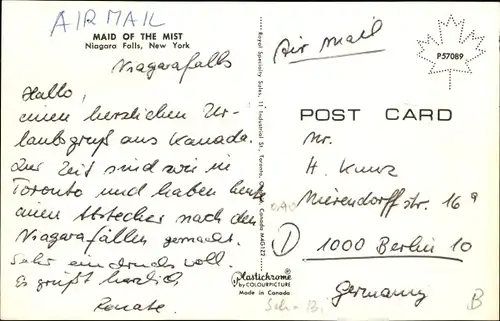 AIR MAIL
MAID OF THE MIST
Niagara Falls, New York
Niagarafalls
Hallo,
einen herzlichen Ur-
laubsgruß aus Kanada.
Zur Zeit sind wir in
Toronto und haben heute
einen Abstecher nach den
Niagarafällen gemacht.
Sehr eindrucksvoll.
Es grüßt herzlich
Renate.
Royal Specialty Sales, 11 Industrial St., Toronto, Canada M4G-1Z2
Plastichrome®
by COLOURPICTURE
Made in Canada
Air mail
P57089
POST CARD
Mr.
H. Kunz
Mierendorffstr. 16a
1000 Berlin 10
Germany
B